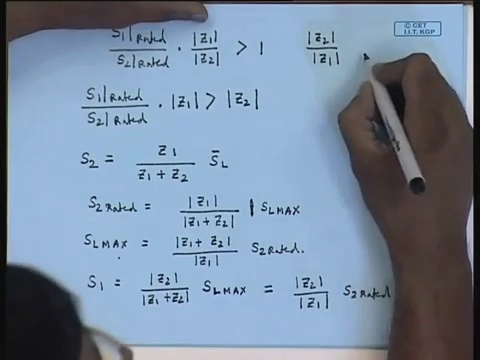 © CET
I.I.T. KGP
S1|Rated / S2|Rated · |Z1| / |Z2| > 1    |Z2| / |Z1|
S1|Rated / S2|Rated · |Z1| > |Z2|
S2 = Z1 / Z1 + Z2 S̄L
S2 Rated = |Z1| / |Z1 + Z2| | SLMAX
SLMAX = |Z1 + Z2| / |Z1| S2 Rated.
S1 = |Z2| / |Z1 + Z2| SLMAX = |Z2| / |Z1| S2 Rated